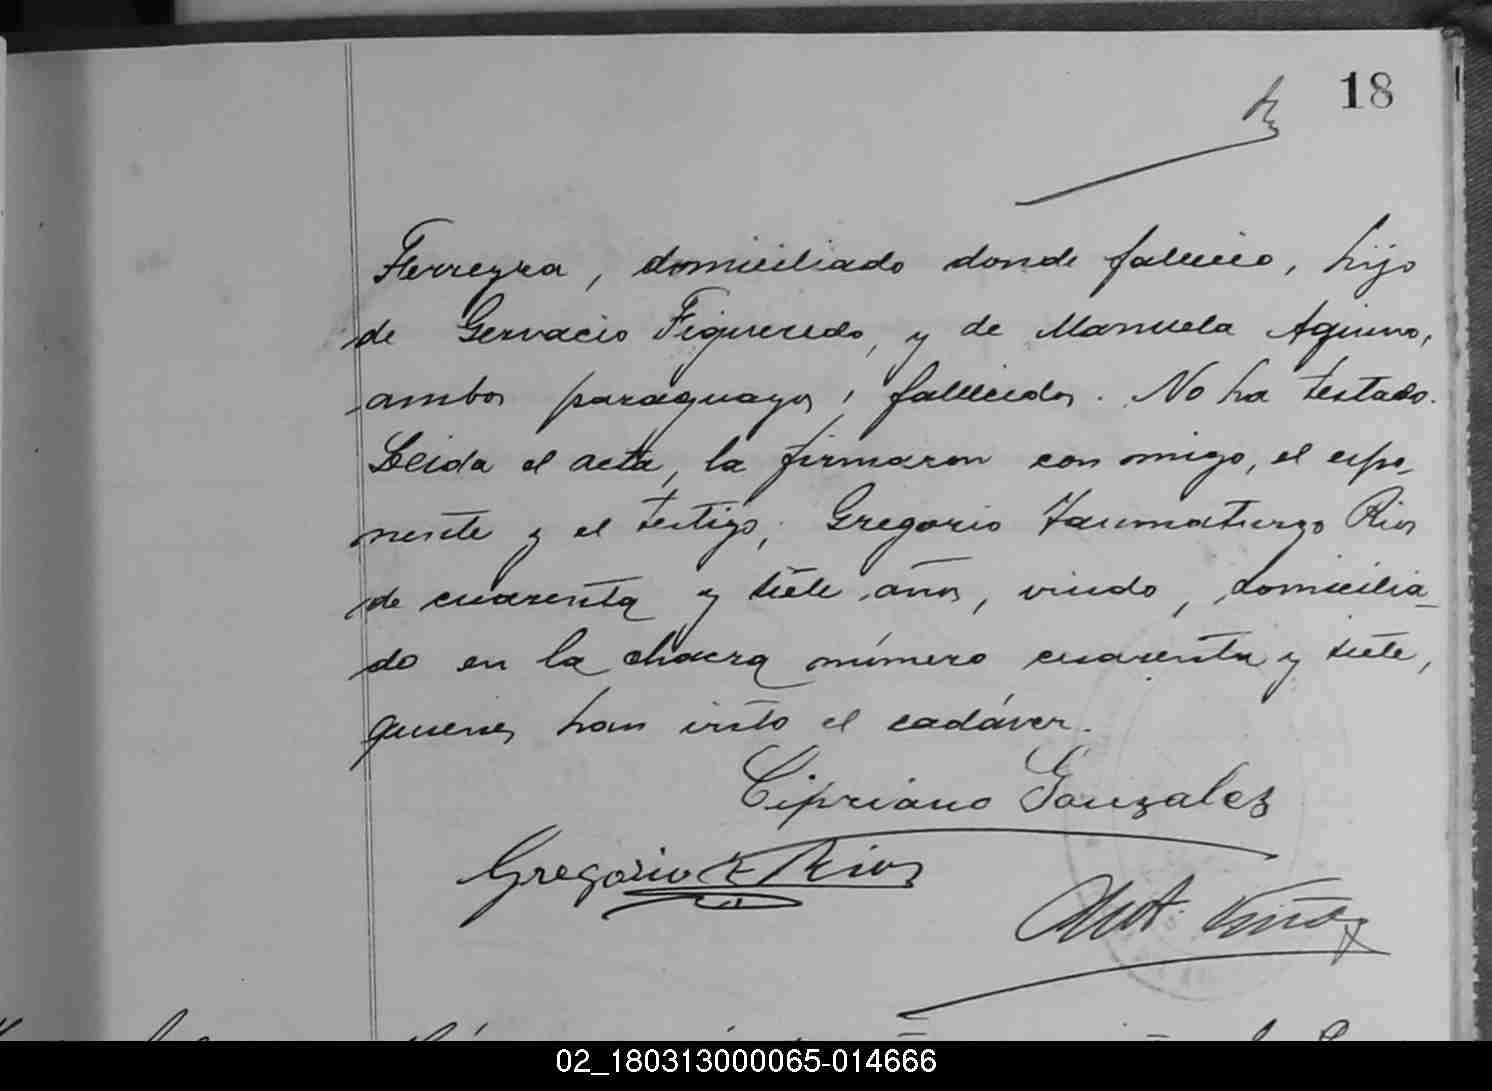 18
Ferreyra, domiciliado donde fallecio, hijo
de Gervacio Figueredo, y de Manuela Aquino,
ambos paraguayos, fallecidos. No ha testado.
Leida el acta, la firmaron con migo, el expo_
nente y el testigo, Gregorio Taumaturgo Rios
de cuarenta y siete años, viudo, domicilia_
do en la chacra número cuarenta y siete,
quienes han visto el cadáver.
Cipriano Gonzalez
Gregorio T Rios
Ant. Viñas
02_180313000065-014666